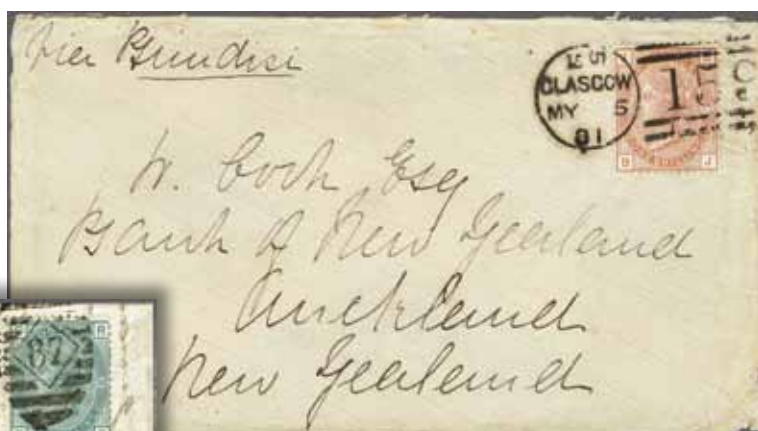 via Brindisi
GLASGOW
MY 5
81
15
B J
W. Cook Esq
Bank of New Zealand
Auckland
New Zealand
87
R